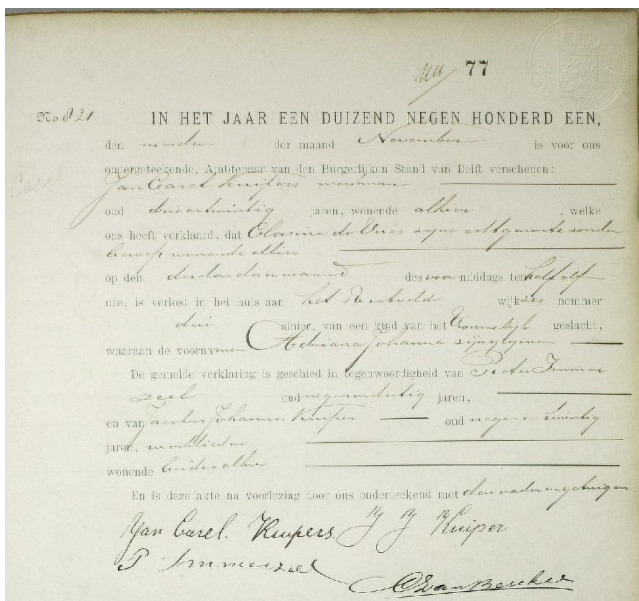 77
No 821
IN HET JAAR EEN DUIZEND NEGEN HONDERD EEN,
den vierden der maand November is voor ons
ondergeteekende, Ambtenaar van den Burgerlijken Stand van Delft verschenen:
Jan Carel Kuipers werkman
Carel
oud drieentwintig jaren, wonende alhier, welke
ons heeft verklaard, dat Clasina de Vries zijne echtgenoote zonder
beroep wonende alhier
op den derden dezer maand des voormiddags ten half elf
ure, is verlost in het huis aan het Rietveld wijk zes nommer
drie alhier, van een kind van het Vrouwelijk geslacht,
waaraan de voornamen Adriana Johanna zijn gegeven
De gemelde verklaring is geschied in tegenwoordigheid van Pieter Immer
zeel oud negenendertig jaren,
en van Jacobus Johannes Kuiper oud negen en twintig
jaren, werklieden
wonende beiden alhier
En is deze akte na voorlezing door ons onderteekend met den vader en getuigen
Jan Carel. Kuipers. J J Kuiper
P Immerzeel